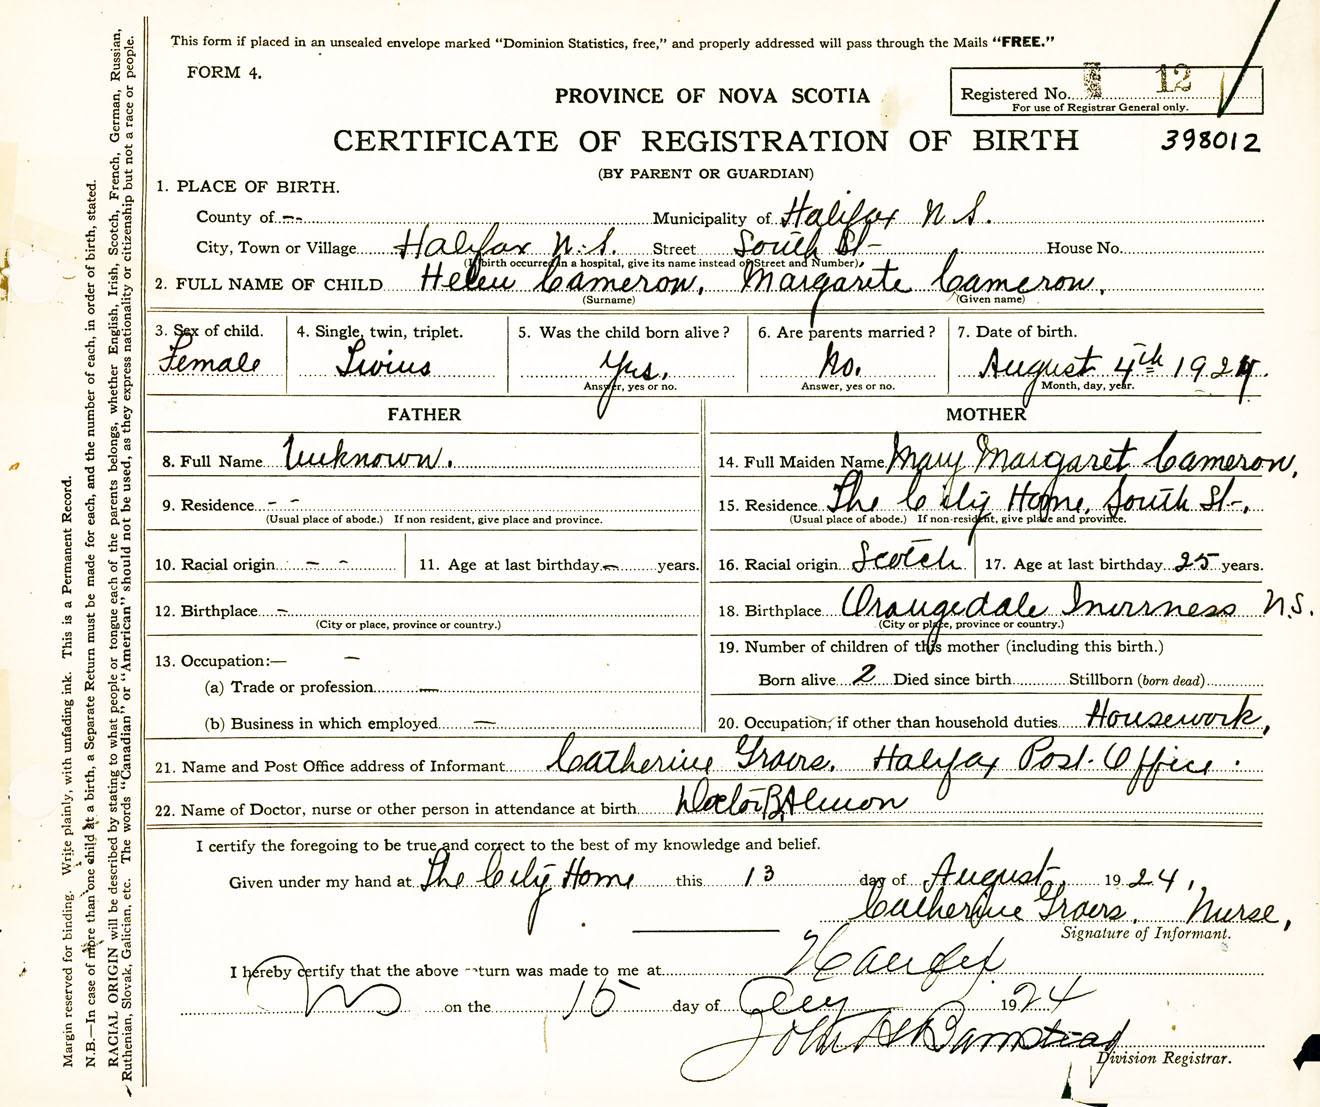 This form if placed in an unsealed envelope marked "Dominion Statistics, free," and properly addressed will pass through the Mails "FREE."
FORM 4.
PROVINCE OF NOVA SCOTIA
Registered No. 12
For use of Registrar General only.
CERTIFICATE OF REGISTRATION OF BIRTH
398012
(BY PARENT OR GUARDIAN)
1. PLACE OF BIRTH.
County of -- Municipality of Halifax N.S.
City, Town or Village Halifax N.S. Street South St- House No.
(If birth occurred in a hospital, give its name instead of Street and Number).
2. FULL NAME OF CHILD Helen Cameron, Margarete Cameron,
(Surname) (Given name)
3. Sex of child. 4. Single, twin, triplet. 5. Was the child born alive? 6. Are parents married? 7. Date of birth.
Female Twins Yes. No. August 4th 1924.
Answer, yes or no. Answer, yes or no. Month, day, year.
FATHER MOTHER
8. Full Name Unknown. 14. Full Maiden Name Mary Margaret Cameron,
9. Residence - - 15. Residence The City Home, South St-,
(Usual place of abode.) If non resident, give place and province. (Usual place of abode.) If non-resident, give place and province.
10. Racial origin - - 11. Age at last birthday - years. 16. Racial origin Scotch 17. Age at last birthday 25 years.
12. Birthplace - 18. Birthplace Orangedale Inverness N.S.
(City or place, province or country.) (City or place, province or country.)
13. Occupation:— - 19. Number of children of this mother (including this birth.)
(a) Trade or profession — Born alive 2 Died since birth Stillborn (born dead)
(b) Business in which employed — 20. Occupation, if other than household duties Housework,
21. Name and Post Office address of Informant Catherine Halifax Post-Office.
22. Name of Doctor, nurse or other person in attendance at birth Doctor B. Almon
I certify the foregoing to be true and correct to the best of my knowledge and belief.
Given under my hand at The City Home this 13 day of August 1924,
Catherine Nurse,
Signature of Informant.
I hereby certify that the above return was made to me at Halifax
on the 15 day of Aug 1924
John Barnstead
Division Registrar.
Margin reserved for binding. Write plainly, with unfading ink. This is a Permanent Record.
N.B.—In case of more than one child at a birth, a Separate Return must be made for each, and the number of each, in order of birth, stated.
RACIAL ORIGIN will be described by stating to what people or tongue each of the parents belongs, whether English, Irish, Scotch, French, German, Russian,
Ruthenian, Slovak, Galician, etc. The words "Canadian" or "American" should not be used, as they express nationality or citizenship but not a race or people.